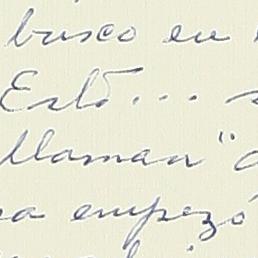 busco en
Esto...
llaman"
empezó